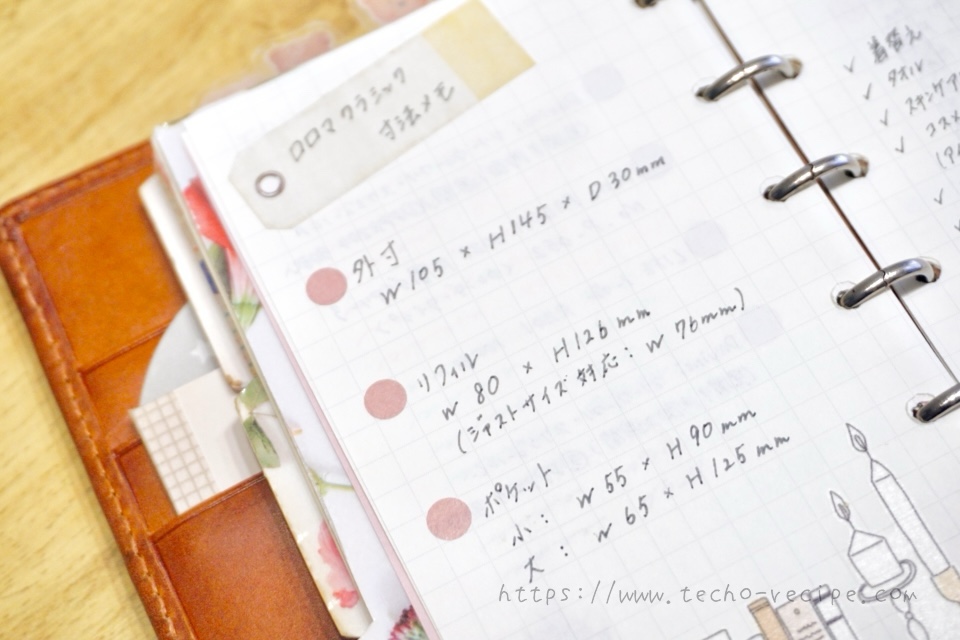 ロロマクラシック
寸法メモ
外寸
W105 × H145 × D30mm
リフィル
W 80 × H126mm
(ジャストサイズ対応: W 76mm)
ポケット
小: W 55 × H 90mm
大: W 65 × H 125mm
✓ 着替え
✓ タオル
✓ スキンケア
✓ コスメ
https://www.techo-recipe.com